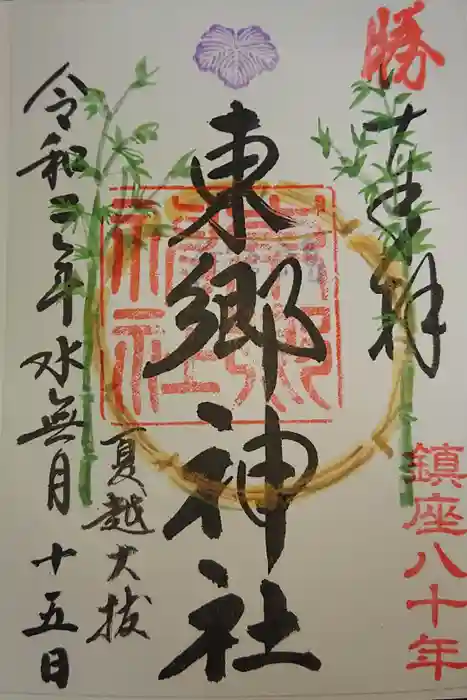 勝
奉拝
鎮座八十年
東郷神社
東郷神社
夏越大祓
令和二年水無月十五日